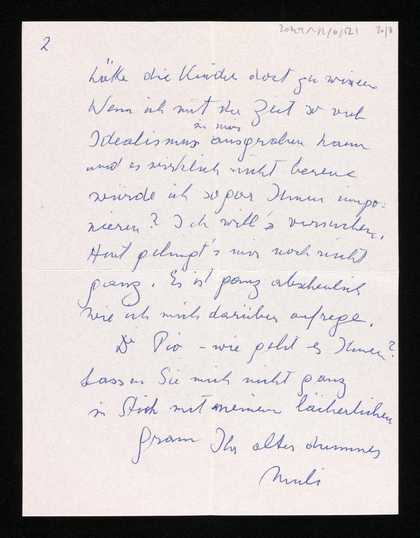 2
hätte die Kinder dort zu wissen
Wenn ich mit der Zeit so viel
in mir
Idealismus ausgraben kann
und es wirklich nicht bereue
würde ich sogar Ihnen impo-
nieren? Ich will's versuchen.
Heut gelingt's mir noch nicht
ganz. Es ist ganz abscheulich
wie ich mich darüber aufrege.
Di Pio – wie geht es Ihnen?
Lassen Sie mich nicht ganz
in Stich mit meinem lächerlichen
Gram Ihr altes dummes